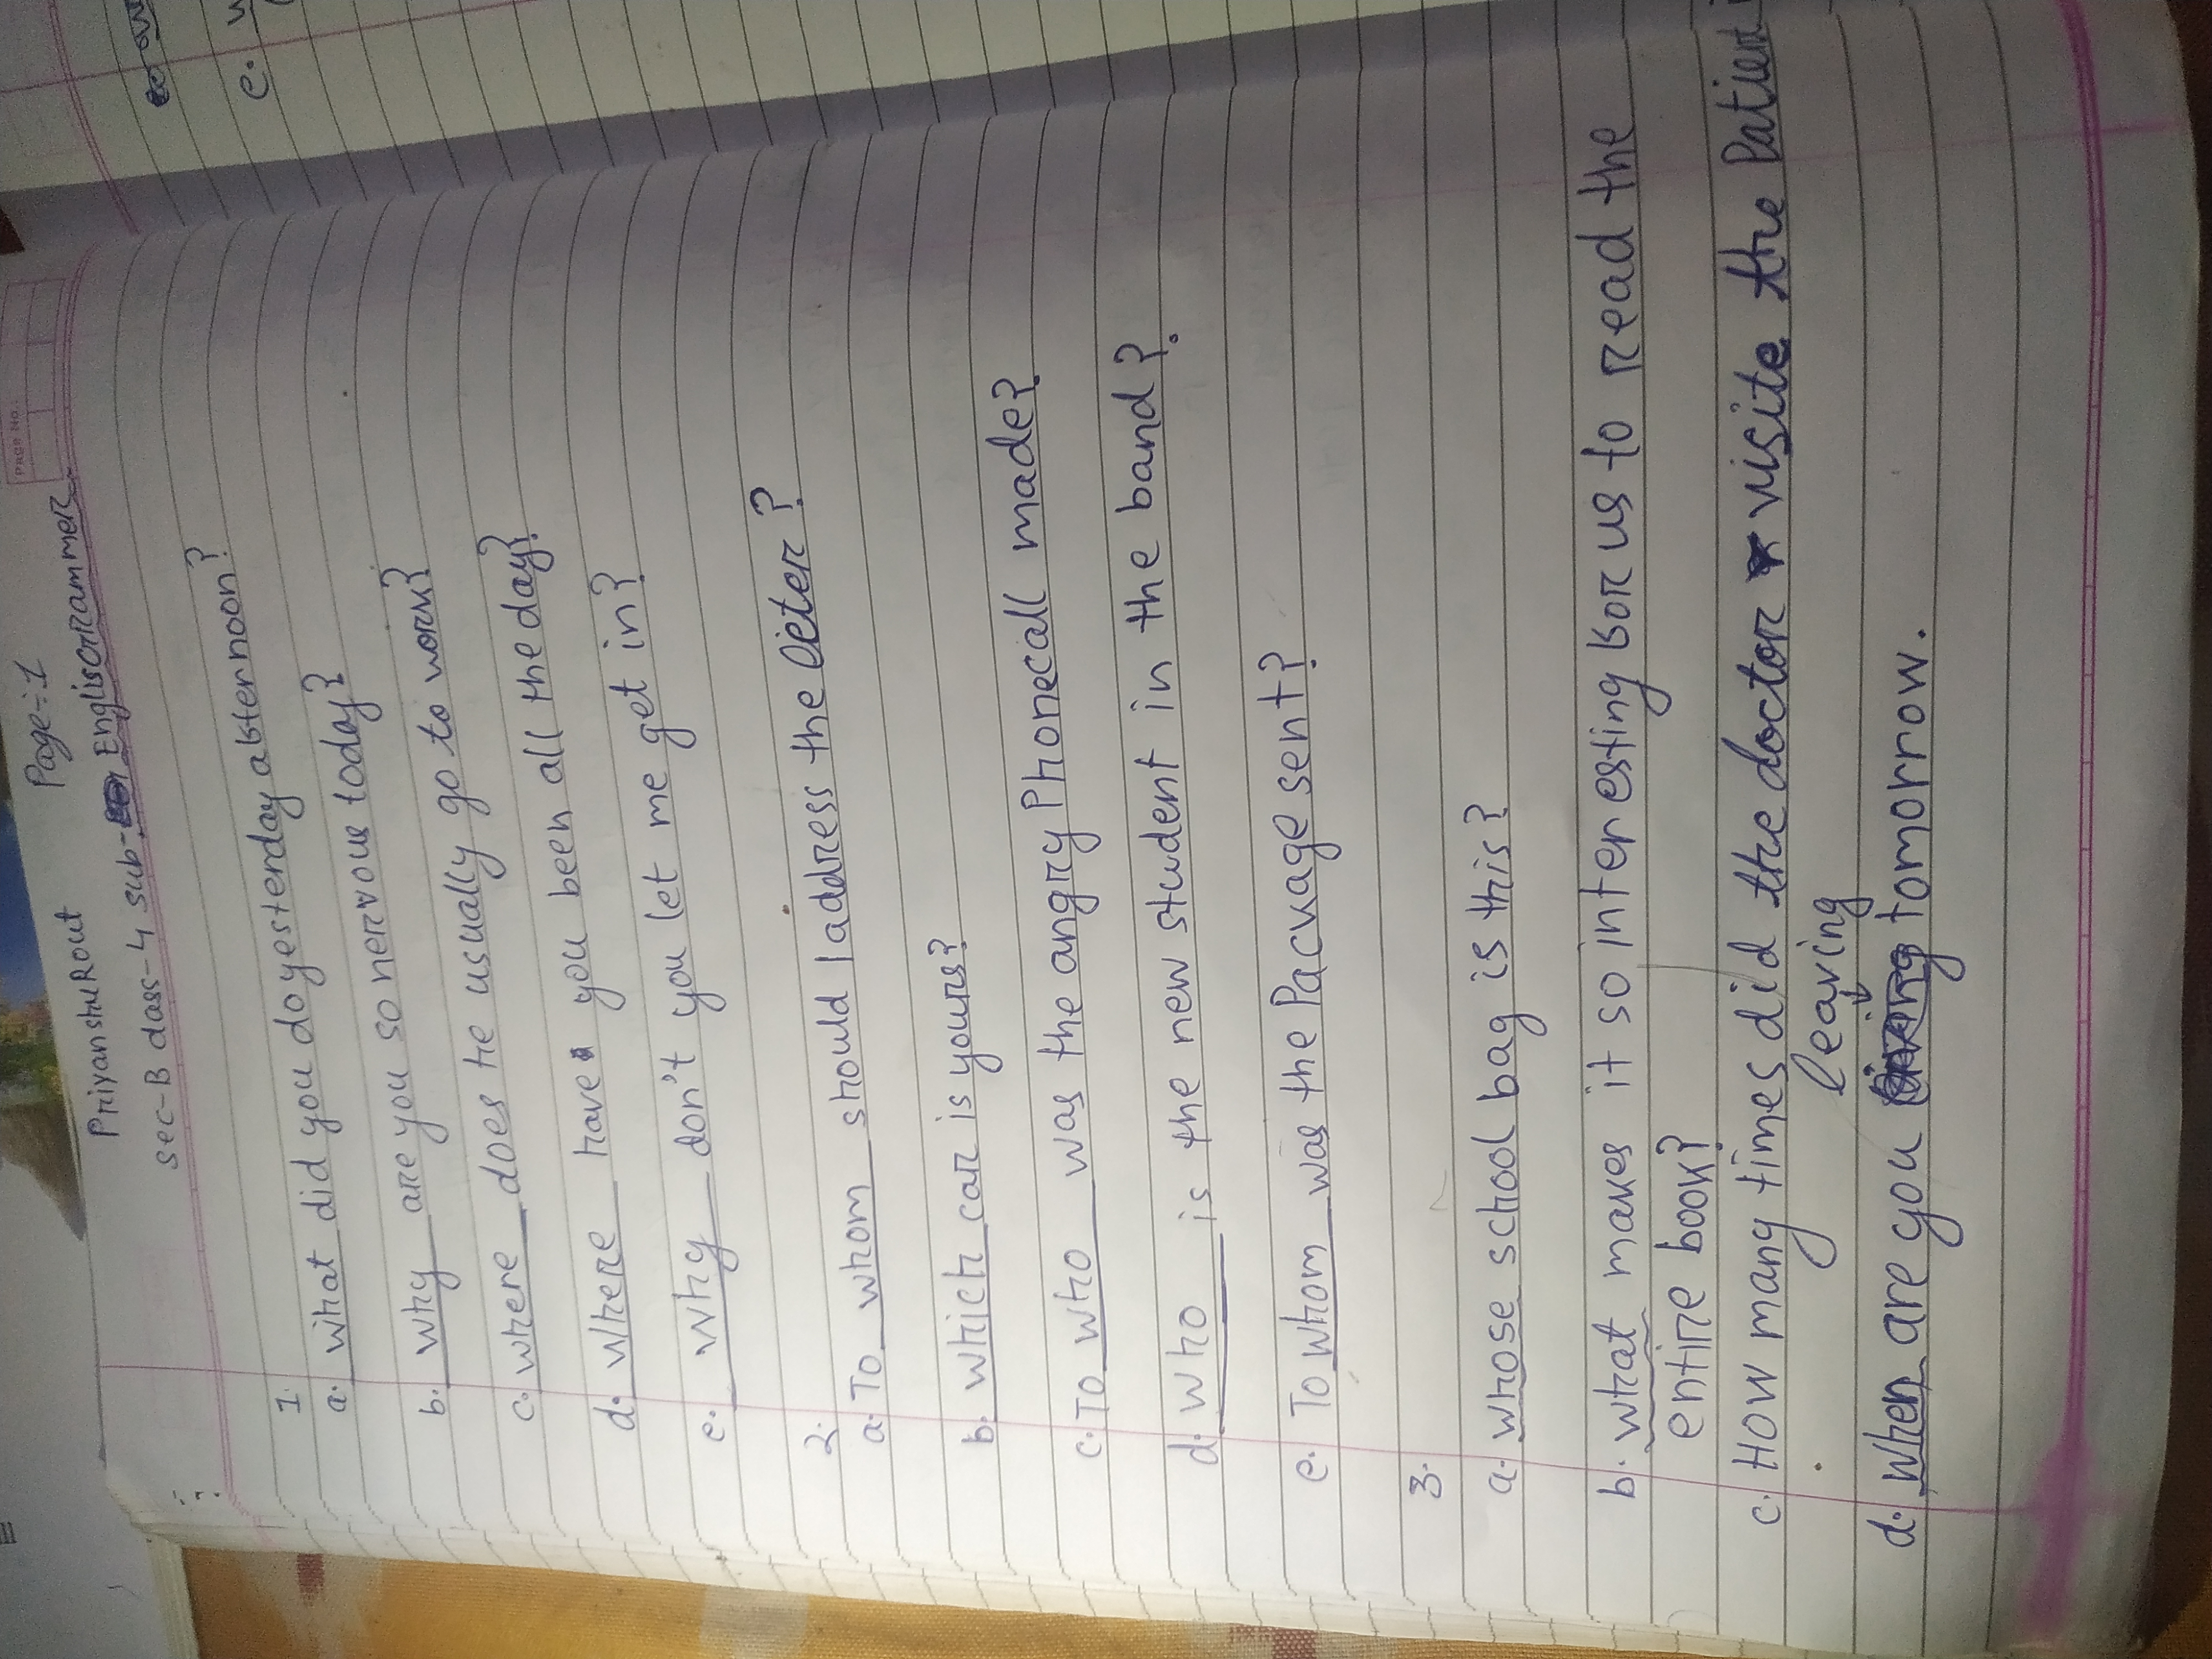 PAGE NO.:
Page÷1
Priyanshu Rout
sec-B class-4 sub- English Grammer
1.
a. what did you do yesterday afternoon?
b. why are you so nervous today?
c. where does he usually go to work?
d. where have you been all the day?
e. why don't you let me get in?
2.
a. To whom should I address the leter?
b. which car is yours?
c. To who was the angry Phonecall made?
d. who is the new student in the band?
e. To whom was the Package sent?
3.
a. whose school bag is this?
b. what makes it so interesting for us to read the
entire book?
c. How many times did the doctor visite the Patient
leaving
d. when are you tomorrow.
e.